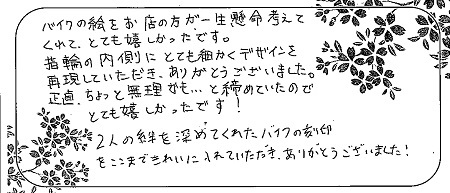 バイクの絵をお店の方が一生懸命考えて
くれて、とても嬉しかったです。
指輪の内側にとても細かくデザインを
再現していただき、ありがとうございました。
正直、ちょっと無理かも…と締めていたので
とても嬉しかったです!
2人の絆を深めてくれたバイクの刻印
をここまできれいに入れていただき、ありがとうございました!